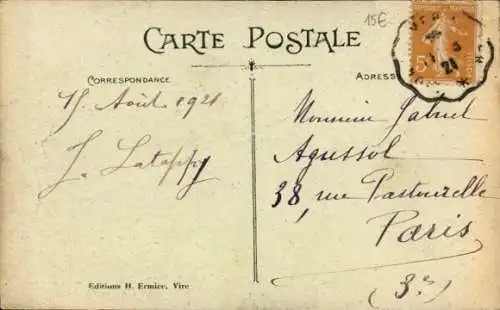 15€
CARTE POSTALE
CORRESPONDANCE
ADRESS
15 Août 1921
J. Latappy
Monsieur Gabriel
Agussol
38, rue Pastourelle
Paris
(3e)
Editions H. Ermice, Vire
21